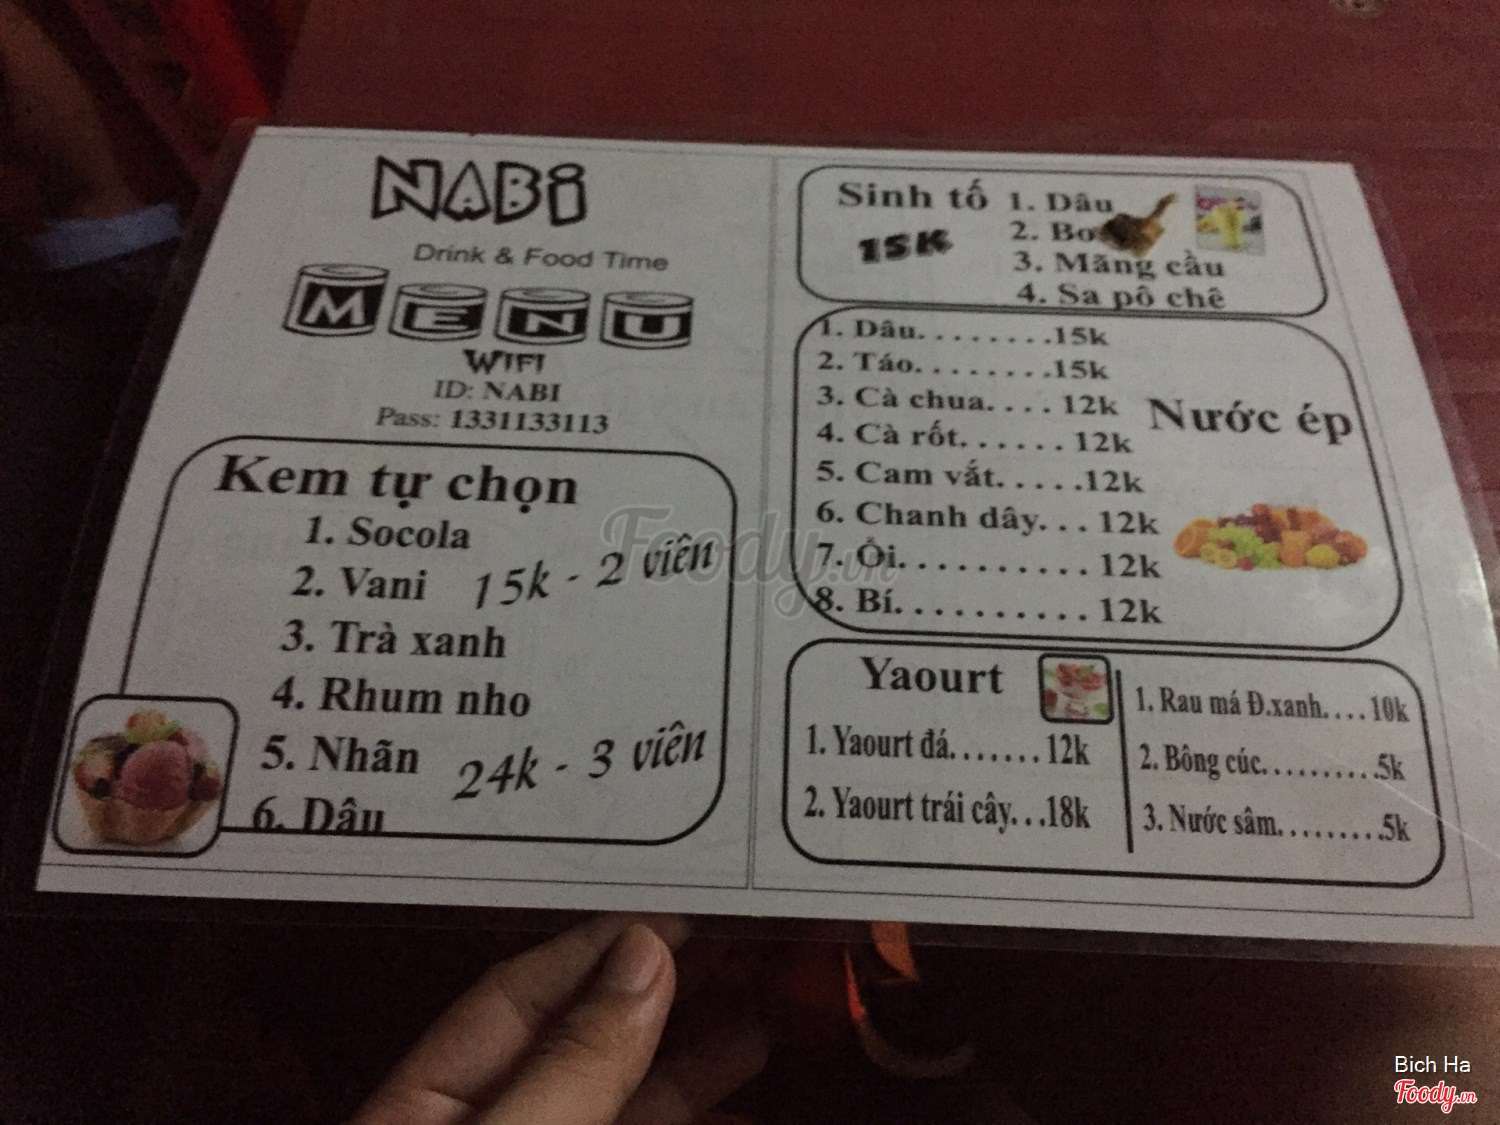 NABi
Drink & Food Time
MENU
WIFI
ID: NABI
Pass: 1331133113
Kem tự chọn
1. Socola
2. Vani
15k - 2 viên
3. Trà xanh
4. Rhum nho
5. Nhãn
24k - 3 viên
6. Dâu
Sinh tố
15K
1. Dâu
2. Bơ
3. Mãng cầu
4. Sa pô chê
Nước ép
1. Dâu. . . . . . . .15k
2. Táo. . . . . . . .15k
3. Cà chua. . . . 12k
4. Cà rốt. . . . . . 12k
5. Cam vắt. . . . .12k
6. Chanh dây. . . 12k
7. Ổi. . . . . . . . . . 12k
8. Bí. . . . . . . . . . 12k
Yaourt
1. Yaourt đá. . . . . . . 12k
2. Yaourt trái cây. . .18k
1. Rau má Đ.xanh. . . . 10k
2. Bông cúc. . . . . . . . . .5k
3. Nước sâm. . . . . . . . .5k
Foody.vn
Bich Ha
Foody.vn